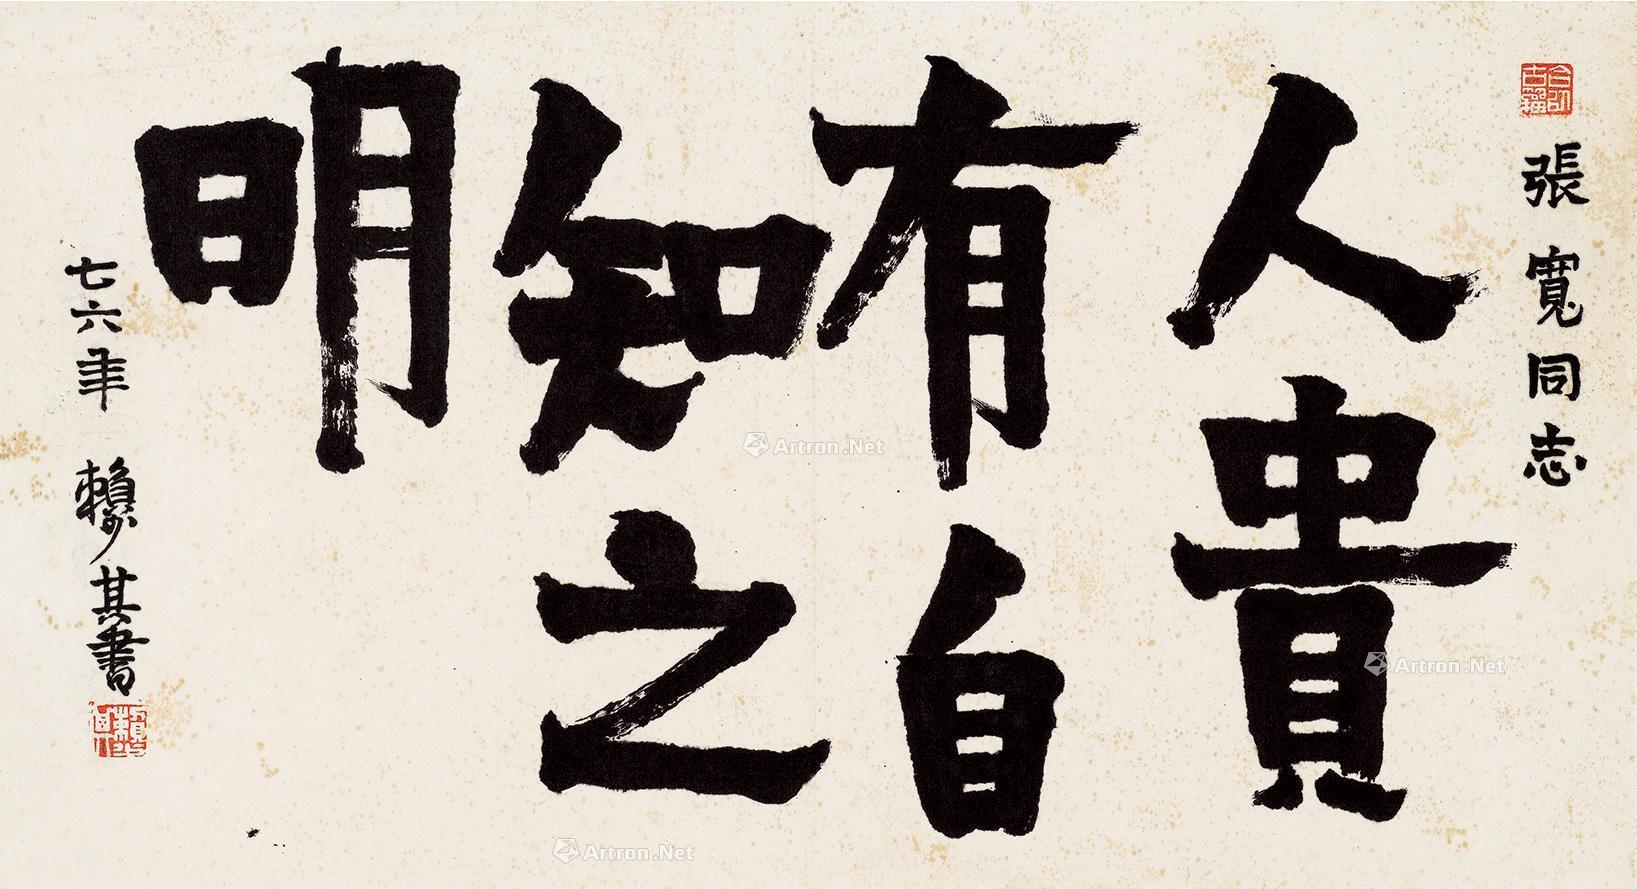 張寬同志
人貴
有自
知之
明
七六年 賴少其書
Artron.Net
Artron.Net
Artron.Net